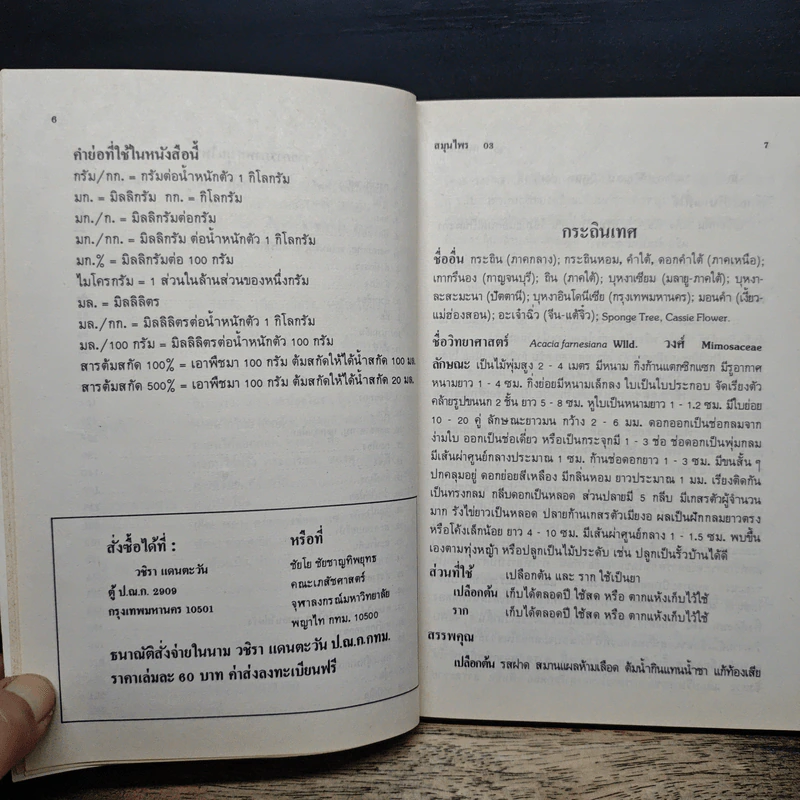 6
คำย่อที่ใช้ในหนังสือนี้
กรัม/กก. = กรัมต่อน้ำหนักตัว 1 กิโลกรัม
มก. = มิลลิกรัม กก. = กิโลกรัม
มก./ก. = มิลลิกรัมต่อกรัม
มก./กก. = มิลลิกรัม ต่อน้ำหนักตัว 1 กิโลกรัม
มก.% = มิลลิกรัมต่อ 100 กรัม
ไมโครกรัม = 1 ส่วนในล้านส่วนของหนึ่งกรัม
มล. = มิลลิลิตร
มล./กก. = มิลลิลิตรต่อน้ำหนักตัว 1 กิโลกรัม
มล./100 กรัม = มิลลิลิตรต่อน้ำหนักตัว 100 กรัม
สารต้มสกัด 100% = เอาพืชมา 100 กรัม ต้มสกัดให้ได้น้ำสกัด 100 มล.
สารต้มสกัด 500% = เอาพืชมา 100 กรัม ต้มสกัดให้ได้น้ำสกัด 20 มล.
สั่งซื้อได้ที่ :
วชิรา แดนตะวัน
ตู้ ป.ณ.ก. 2909
กรุงเทพมหานคร 10501
หรือที่
ชัยโย ชัยชาญทิพยุทธ
คณะเภสัชศาสตร์
จุฬาลงกรณ์มหาวิทยาลัย
พญาไท กทม. 10500
ธนาณัติสั่งจ่ายในนาม วชิรา แดนตะวัน ป.ณ.ก.กทม.
ราคาเล่มละ 60 บาท ค่าส่งลงทะเบียนฟรี
สมุนไพร 03 7
กระถินเทศ
ชื่ออื่น กระถิน (ภาคกลาง); กระถินหอม, คำใต้, ดอกคำใต้ (ภาคเหนือ);
เกากรึนอง (กาญจนบุรี); ถิน (ภาคใต้); บุหงาเซียม (มลายู-ภาคใต้); บุหงา-
ละสะมะนา (ปัตตานี); บุหงาอินโดนีเซีย (กรุงเทพมหานคร); มอนคำ (เงี้ยว-
แม่ฮ่องสอน); อะเจ๋าฉิ่ว (จีน-แต้จิ๋ว); Sponge Tree, Cassie Flower.
ชื่อวิทยาศาสตร์ Acacia farnesiana Willd. วงศ์ Mimosaceae
ลักษณะ เป็นไม้พุ่มสูง 2 - 4 เมตร มีหนาม กิ่งก้านแตกซิกแซก มีรูอากาศ
หนามยาว 1 - 4 ซม. กิ่งย่อยมีหนามเล็กลง ใบเป็นใบประกอบ จัดเรียงตัว
คล้ายรูปขนนก 2 ชั้น ยาว 5 - 8 ซม. หูใบเป็นหนามยาว 1 - 1.2 ซม. มีใบย่อย
10 - 20 คู่ ลักษณะยาวมน กว้าง 2 - 6 มม. ดอกออกเป็นช่อกลมจาก
ง่ามใบ ออกเป็นช่อเดี่ยว หรือเป็นกระจุกมี 1 - 3 ช่อ ช่อดอกเป็นพุ่มกลม
มีเส้นผ่าศูนย์กลางประมาณ 1 ซม. ก้านช่อดอกยาว 1 - 3 ซม. มีขนสั้น ๆ
ปกคลุมอยู่ ดอกย่อยสีเหลือง มีกลิ่นหอม ยาวประมาณ 1 มม. เรียงติดกัน
เป็นทรงกลม กลีบดอกเป็นหลอด ส่วนปลายมี 5 กลีบ มีเกสรตัวผู้จำนวน
มาก รังไข่ยาวเป็นหลอด ปลายก้านเกสรตัวเมียงอ ผลเป็นฝักกลมยาวตรง
หรือโค้งเล็กน้อย ยาว 4 - 10 ซม. มีเส้นผ่าศูนย์กลาง 1 - 1.5 ซม. พบขึ้น
เองตามทุ่งหญ้า หรือปลูกเป็นไม้ประดับ เช่น ปลูกเป็นรั้วบ้านได้ดี
ส่วนที่ใช้ เปลือกต้น และ ราก ใช้เป็นยา
เปลือกต้น เก็บได้ตลอดปี ใช้สด หรือ ตากแห้งเก็บไว้ใช้
ราก เก็บได้ตลอดปี ใช้สด หรือ ตากแห้งเก็บไว้ใช้
สรรพคุณ
เปลือกต้น รสฝาด สมานแผลห้ามเลือด ต้มน้ำกินแทนน้ำชา แก้ท้องเสีย